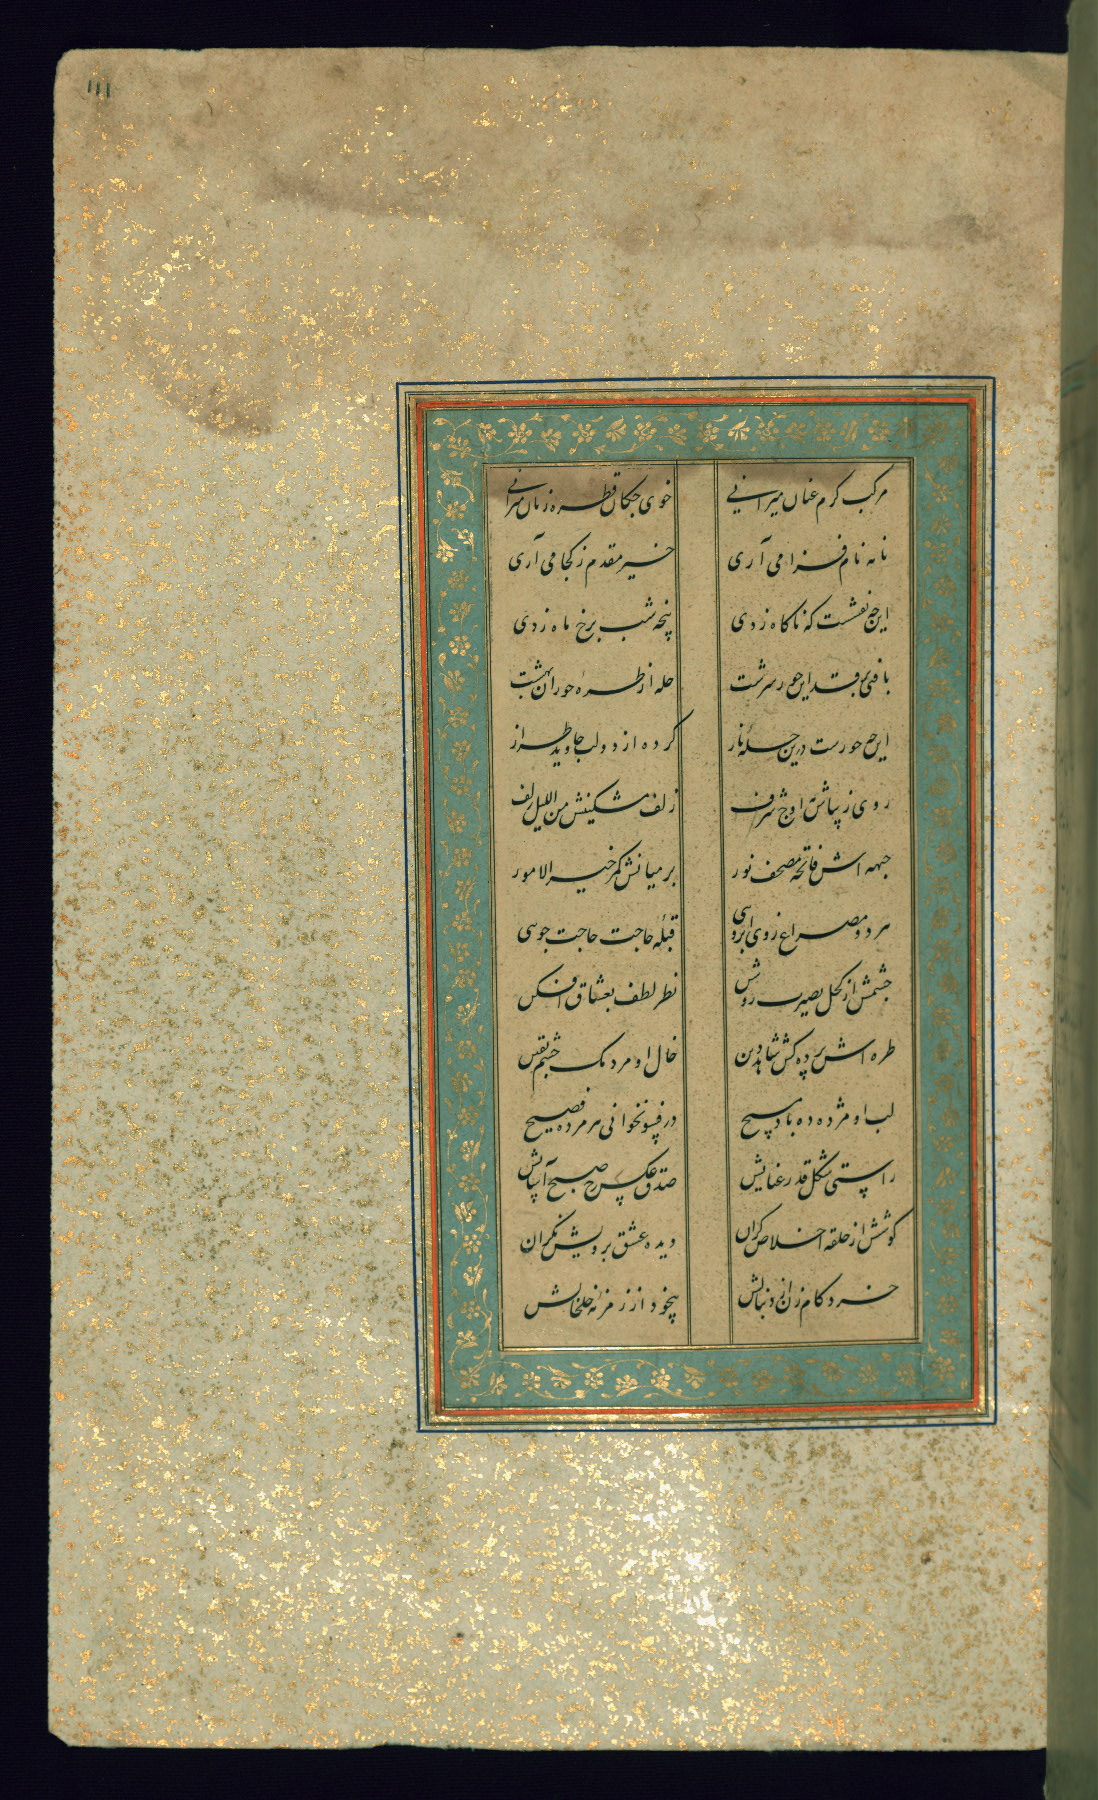 ۱۱۱
مرکب گرم عنان میرانی خوی چکان قطره زنان میرانی
نامه نام فزا می آری خیر مقدم ز کجا می آری
این چه نقشست که ناگاه زدی پنجه شب برخ ماه زدی
بافتی بر قد این حور سرشت حله از طره حوران بهشت
این چه حورست درین حله ناز کرده از دولت جاوید طراز
روی زیباش اوج شرف زلف مشکینش من اللیل زلف
جبهه اش فاتحه مصحف نور بر میانش کمر خیر الامور
هر دو مصراع زوی ابروسی قبله حاجت حاجت جوسی
چشمش از کحل بصیرت روشن نظر لطف بعشاق افکن
طره اش پرده کش شاهد دین خال او مردمک چشم یقین
لب او مژده ده باد مسیح در فسونخوانی هر مرده فصیح
راستی شکل قد رعنایش صدق عکس رخ صبح آسایش
گوشش از حلقه اخلاص گران دیده عشق برویش نگران
خرد کام زن از دنبالش بیخود از زمزمه خلخالش